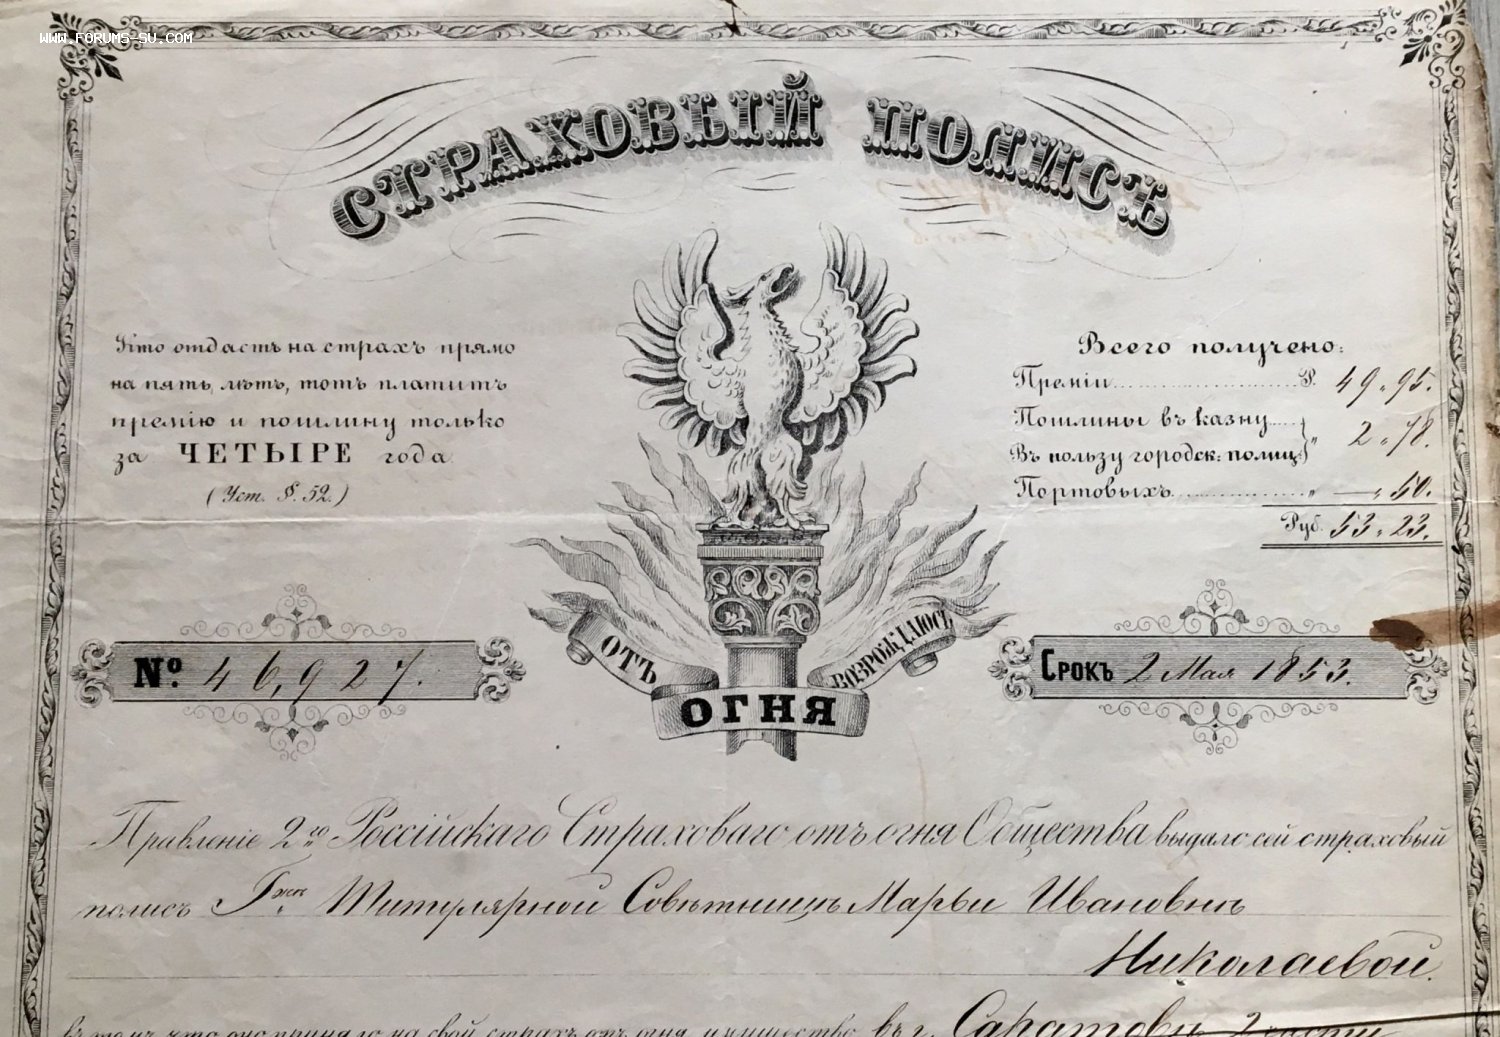 WWW.FORUMS-SU.COM
СТРАХОВЫЙ ПОЛИСЪ
Кто отдастъ на страхъ прямо
на пять лѣтъ, тотъ платитъ
премію и пошлину только
за ЧЕТЫРЕ года
(Уст. §. 52.)
Всего получено:
Преміи......Р. 49 „ 95.
Пошлины въ казну....
Въ пользу городск: полиц „ 2 „ 78.
Портовыхъ...... „ — „ 50.
Руб. 53 „ 23.
№. 46,927.
ОТЪ ОГНЯ ВОЗРОЖДАЮСЬ
Срокъ 2 Мая 1853.
Правленіе 2го Россійскаго Страховаго отъ огня Общества выдало сей страховый
полисъ Гжѣ Титулярной Совѣтницѣ Марьи Ивановнѣ
Николаевой.
въ томъ, что оно приняло на свой страхъ отъ огня имущество въ г. Саратовѣ 2 части